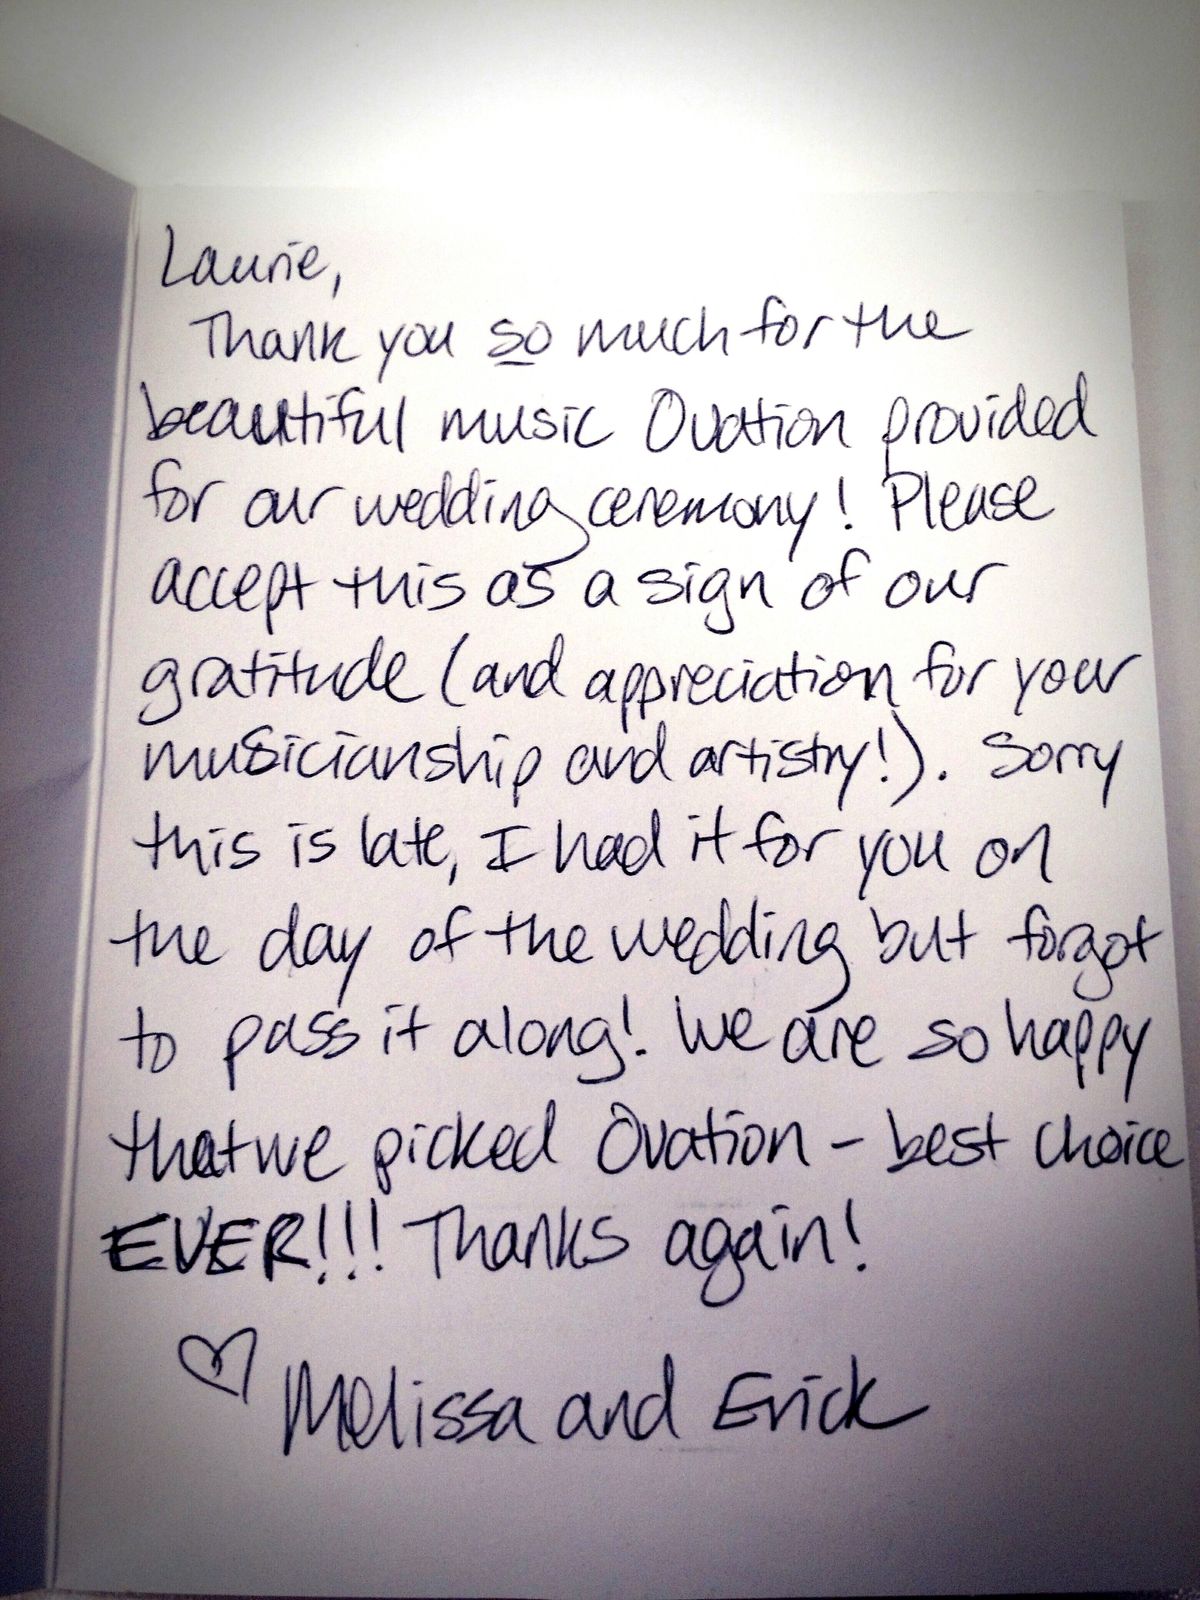 Laurie,
Thank you so much for the
beautiful music Ovation provided
for our wedding ceremony! Please
accept this as a sign of our
gratitude (and appreciation for your
musicianship and artistry!). Sorry
this is late, I had it for you on
the day of the wedding but forgot
to pass it along! We are so happy
that we picked Ovation - best choice
EVER!!! Thanks again!
♡ Melissa and Erick